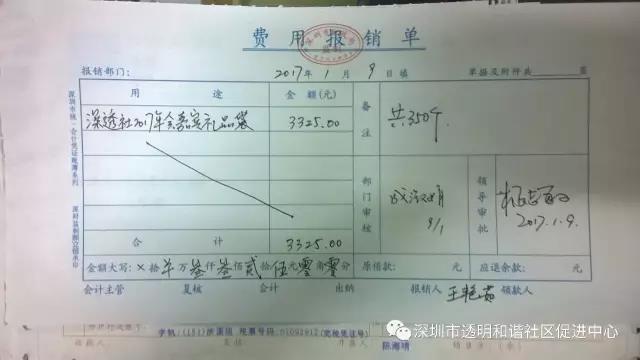 费用报销单
报销部门： 2017年1月9日填 单据及附件共 页
用途 金额(元)
深透社2017年会嘉宾礼品袋 3325.00
备注 共350个
部门审核 9/1
领导审批 2017.1.9.
合计 3325.00
金额大写：×拾 万叁仟叁佰贰拾伍元零角零分 原借款： 元 应退余款： 元
会计主管 复核 会计 出纳 报销人 王艳茹 领款人
深圳市统一会计凭证账簿系列
陈海晴
深圳市透明和谐社区促进中心